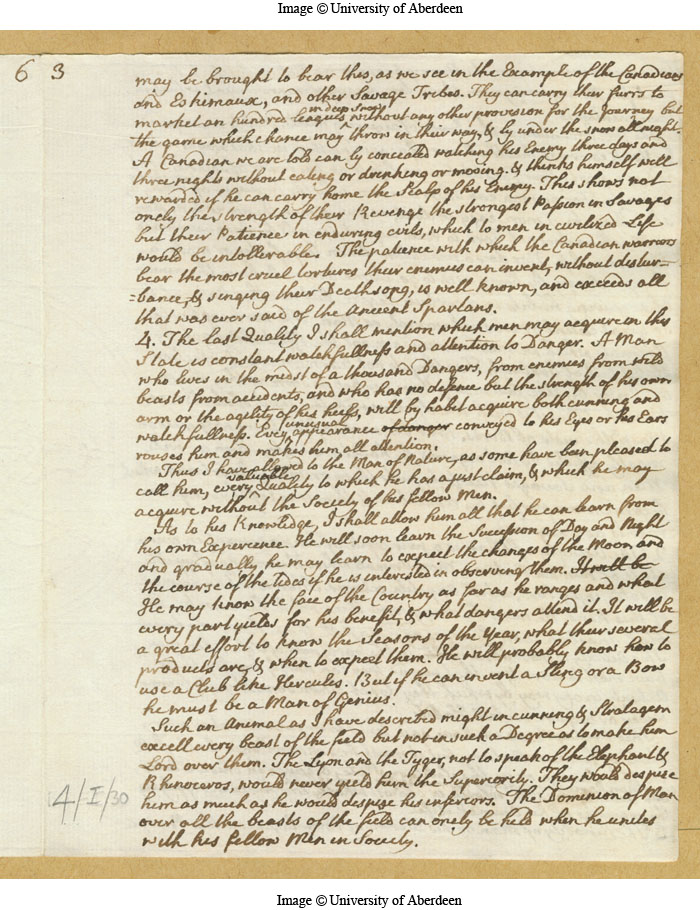 Image © University of Aberdeen
6 3
may be brought to bear this, as we see in the Example of the Canadians
and Eskimaux, and other Savage Tribes. They can carry their furrs to
in deep Snow
market an hundred leagues without any other provision for the Journey but
the game which chance may throw in their way, & ly under the snow all night.
A Canadian we are told can ly concealed watching his Enemy three days and
three nights without eating or drinking or moving. & thinks himself well
rewarded if he can carry home the Scalp of his Enemy. This shows not
onely the strength of their Revenge the strongest Passion in Savages
but their Patience in enduring evils, which to men in civilized Life
would be intollerable. The patience with which the Canadian warriors
bear the most cruel tortures their enemies can invent, without distur=
=bance, & singing their Death song, is well known, and exceeds all
that was ever said of the Ancient Spartans.
4. The last Quality I shall mention which men may acquire in this
State is constant watchfullness and attention to Danger. A Man
who lives in the midst of a thousand Dangers, from enemies from wild
beasts from accidents, and who has no defence but the strength of his own
arm or the agility of his heels, will by habit acquire both cunning and
unusual
watchfullness. Every appearance of danger conveyed to his Eyes or his Ears
rouses him and makes him all attention.
Thus I have allowed to the Man of Nature, as some have been pleased to
valuable
call him, every Quality to which he has a just claim, & which he may
acquire without the Society of his fellow Men.
As to his Knowledge, I shall allow him all that he can learn from
his own Experience. He will soon learn the Succession of Day and Night
and gradually he may learn to expect the changes of the Moon and
the course of the tides if he is interested in observing them. It will be
He may know the face of the Country as far as he ranges and what
every part yields for his benefit, & what dangers attend it. It will be
a great effort to know the Seasons of the Year, what their several
products are, & when to expect them. He will probably know how to
use a Club like Hercules. But if he can invent a Sling or a Bow
he must be a Man of Genius.
Such an Animal as I have described might in cunning & Stratagem
excell every beast of the field but not in such a Degree as to make him
Lord over them. The Lyon and the Tyger, not to speak of the Elephant &
Rhinoceros, would never yield him the Superiority. They would despise
him as much as he would despise his inferiors. The Dominion of Man
over all the beasts of the field can onely be held when he unites
with his fellow Men in Society.
4/I/30
Image © University of Aberdeen